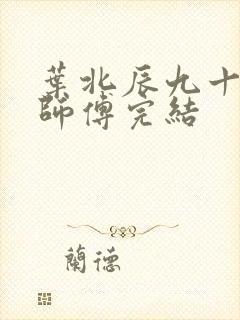 葉北辰九十
師傅完結
蘭德